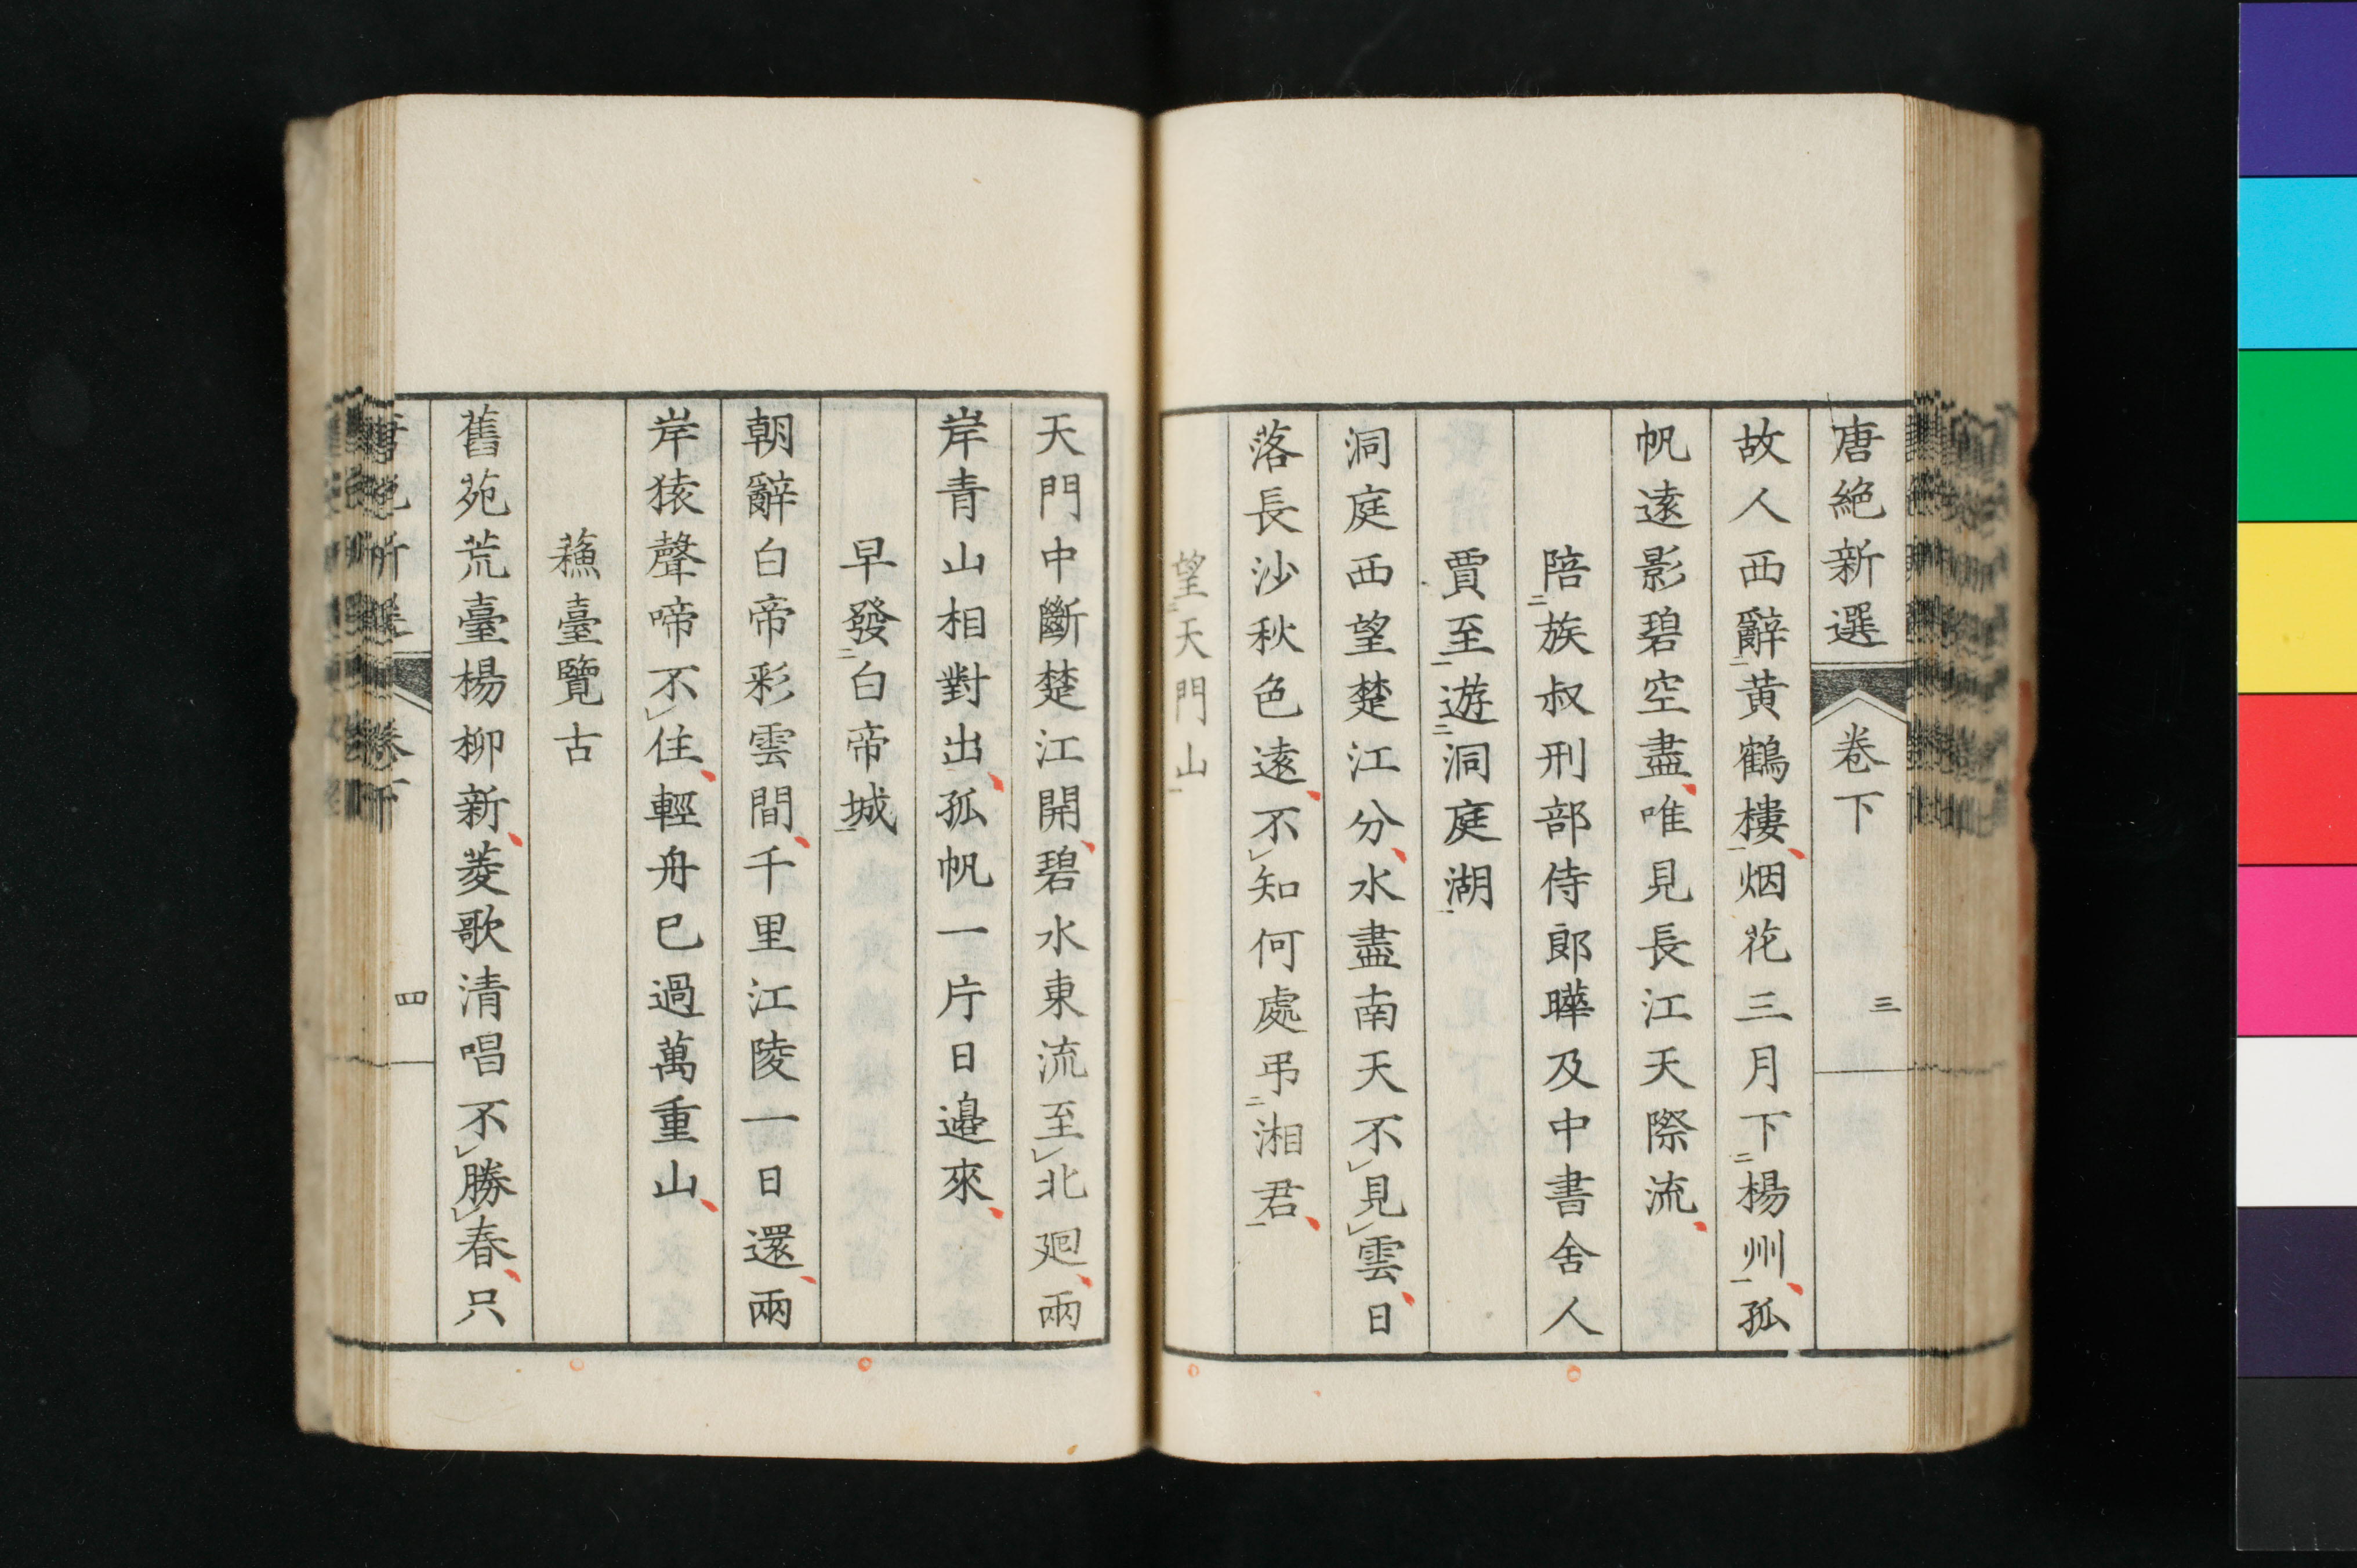 唐絶新選 卷下 三
故人西辭黄鶴樓烟花三月下楊州孤
帆遠影碧空盡唯見長江天際流
陪族叔刑部侍郎曄及中書舍人
賈至遊洞庭湖
洞庭西望楚江分水盡南天不見雲日
落長沙秋色遠不知何處弔湘君
望天門山
天門中斷楚江開碧水東流至北廻兩
岸青山相對出孤帆一片日邉來
早發白帝城
朝辭白帝彩雲間千里江陵一日還兩
岸猿聲啼不住輕舟已過萬重山
蘓臺覽古
舊苑荒臺楊柳新菱歌清唱不勝春只
四